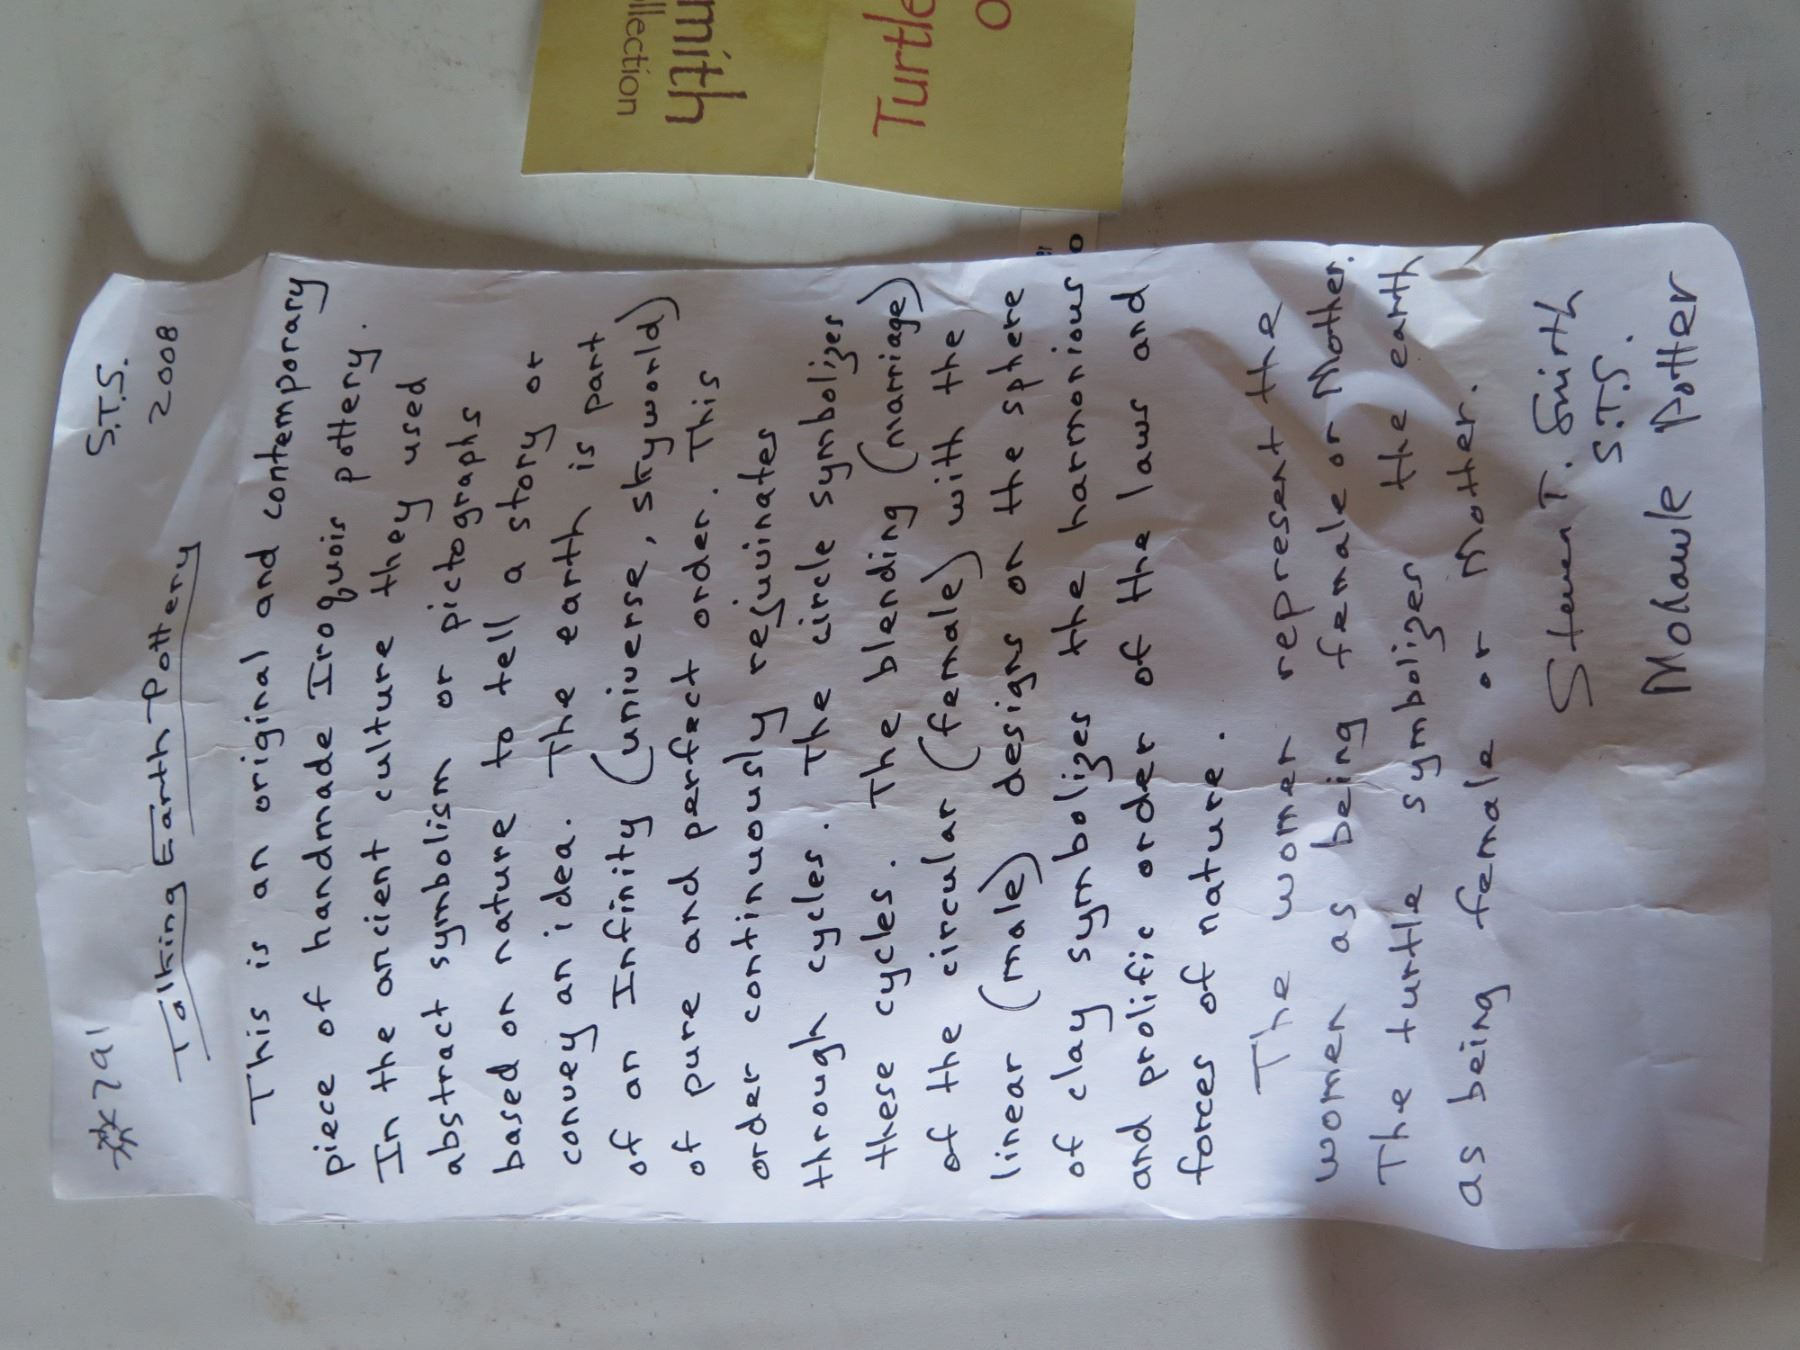 **791
S.T.S.
2008
Talking Earth Pottery
This is an original and contemporary
piece of handmade Iroquois pottery.
In the ancient culture they used
abstract symbolism or pictographs
based on nature to tell a story or
convey an idea. The earth is part
of an Infinity (universe, skyworld)
of pure and perfect order. This
order continuously rejuvinates
through cycles. The circle symbolizes
these cycles. The blending (marriage)
of the circular (female) with the
linear (male) designs on the sphere
of clay symbolizes the harmonious
and prolific order of the laws and
forces of nature.
The women represent the
women as being female or Mother.
The turtle symbolizes the earth
as being female or Mother.
Steven T. Smith
S.T.S.
Mohawk Potter
mith
ollection
Turtle
o